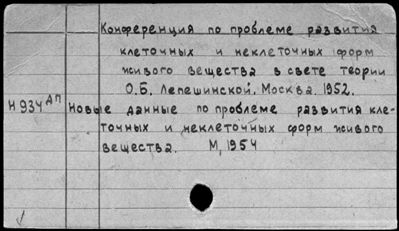 Конференция по проблеме развития
клеточных и неклеточных форм
живого вещества в свете теории
О.Б. Лепешинской. Москва. 1952.
Н934 ДП Новые данные по проблеме развития кле-
точных и неклеточных форм живого
вещества. М, 1954